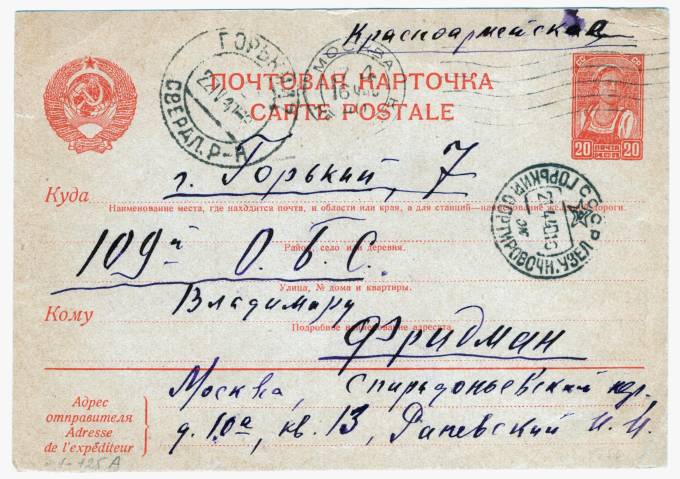 Красноармейская
ГОРЬКИЙ
СВЕРДЛ. Р-Н
МОСКВА
16
ПОЧТОВАЯ КАРТОЧКА
CARTE POSTALE
20 ПОЧТА 20
Куда г. Горький, 7
Наименование места, где находится почта, и области или края, а для станций—наименование жел. дороги.
СССР ГОРЬКИЙ СОРТИРОВОЧН. УЗЕЛ
109й О.Б.С.
Район, село или деревня.
Улица, № дома и квартиры.
Кому Владимиру
Подробное наименование адресата
Фридман
Адрес отправителя
Adresse de l'expéditeur
Москва, Спиридоньевский пер,
д. 10а, кв. 13, Раневский И. И.